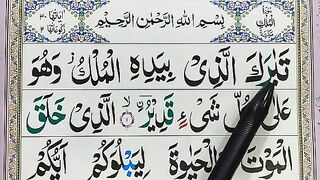 بِسْمِ اللهِ الرَّحْمٰنِ الرَّحِيْمِ
تَبٰرَكَ الَّذِىْ بِيَدِهِ الْمُلْكُ وَهُوَ
عَلٰى شَىْءٍ قَدِيْرُ ۨ ۝۱ الَّذِىْ خَلَقَ
الْمَوْتَ الْحَيٰوةَ لِيَبْلُوَكُمْ اَيُّكُمْ